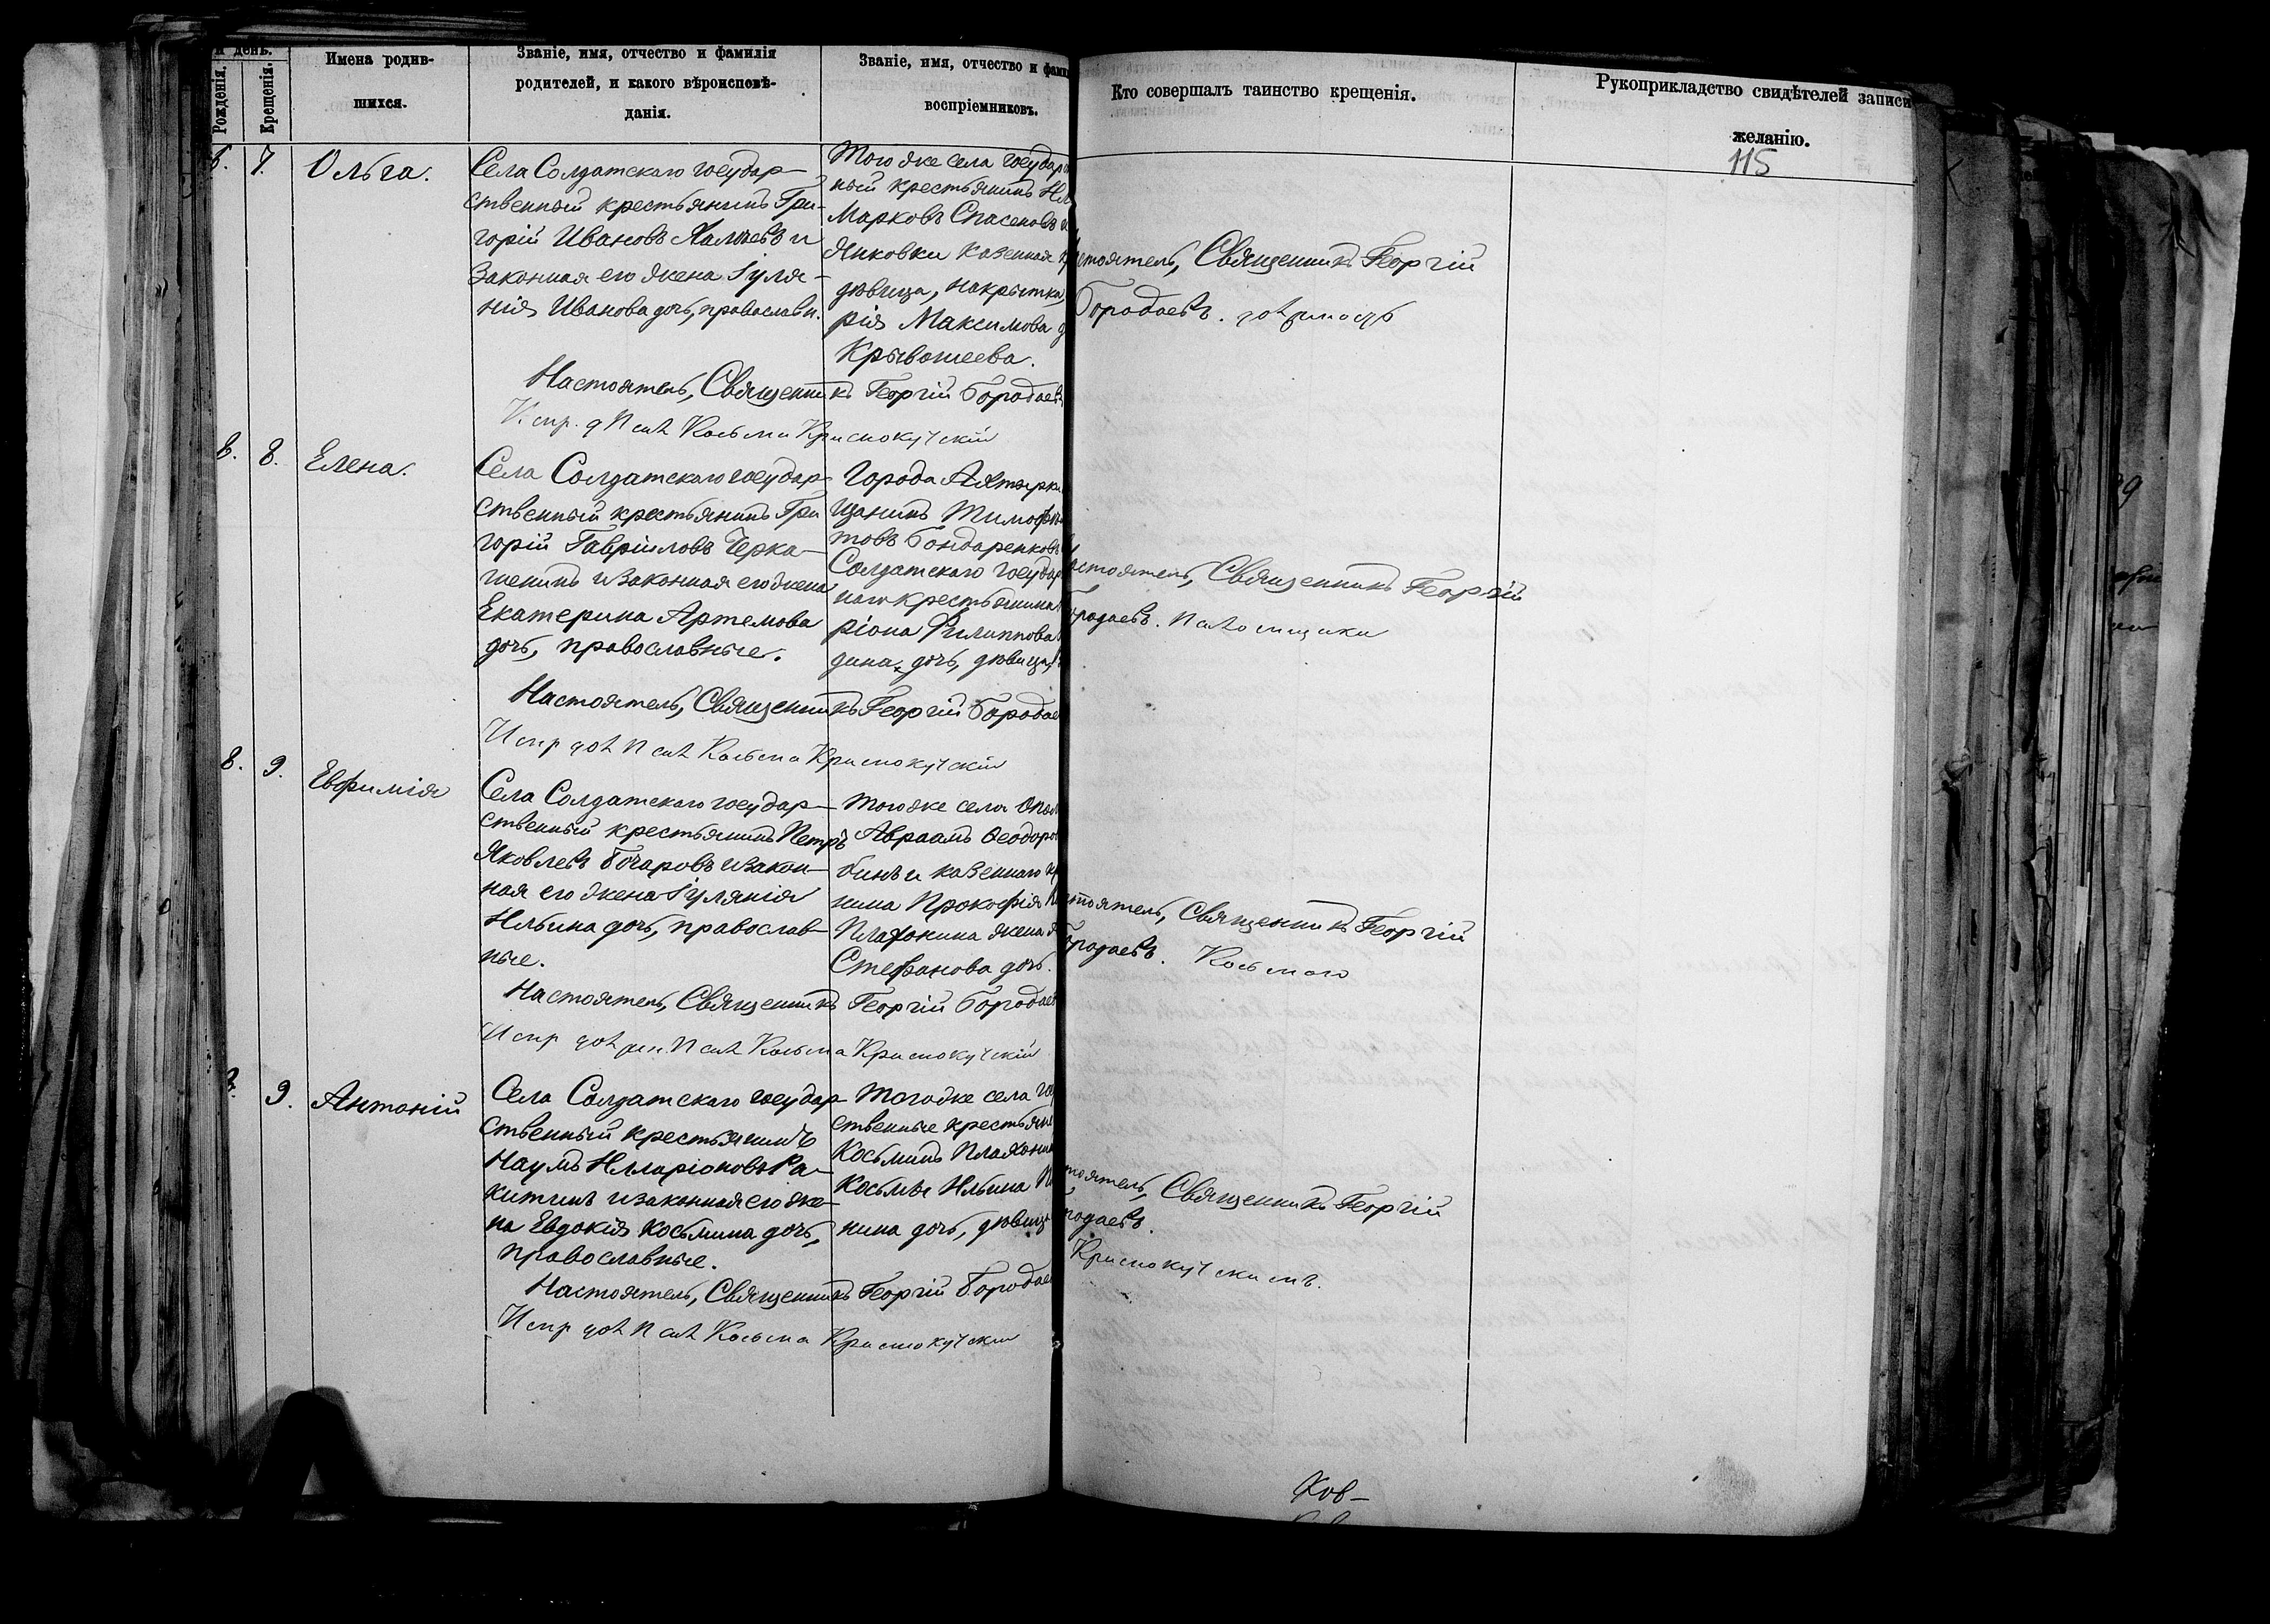 и день.
Рожденія.
Крещенія.
Имена родив-
шихся.
Званіе, имя, отчество и фамилія
родителей, и какого вѣроисповѣ-
данія.
Званіе, имя, отчество и фами
воспріемниковъ.
Кто совершалъ таинство крещенія.
Рукоприкладство свидѣтелей записи
желанію.
115
6. 7. Ольга.
Села Солдатскаго государ-
ственный крестьянинъ Гри-
горій Ивановъ и
законная его жена Іуля-
нія Иванова дочь, православн.
Того же села государ
ный крестьянинъ Ил
Марковъ Спасеновъ и
Янковки казенная
дѣвица,
рія Максимова
Крывошеева.
Настоятель, Священникъ Георгій Бородаев
Испр. д Псал Косьма Краснокутскій
стоятель, Священникъ Георгій
Бородаевъ.
8. 8. Елена.
Села Солдатскаго государ-
ственный крестьянинъ Гри
горій Гавріиловъ Черка-
шенинъ и законная его жена
Екатерина Артемова
дочь, православные.
Города Ахтырки
щанинъ Тимофе
товъ Бондаренковъ
Солдатскаго государ
наго крестьянина
ріона Филиппова
дина дочь, дѣвица,
Настоятель, Священникъ Георгій Бородае
Испр дол Псал Косьма Краснокутскій
стоятель, Священникъ Георгій
Бородаевъ. Псаломщики
8. 9. Евфимія
Села Солдатскаго государ-
ственный крестьянинъ Петръ
Яковлевъ Бочаровъ и закон-
ная его жена Іулянія
Ильина дочь, православ-
ные.
Того же села
Авраамъ Ѳеодоро
бинъ и казеннаго кр
нина Прокофія
Плахонина жена
Стефанова дочь.
Настоятель, Священникъ Георгій Бородае
Испр дол Псал Косьма Краснокутскій
стоятель, Священникъ Георгій
Бородаевъ. Косьмою
9. Антоній
Села Солдатскаго государ
ственный крестьянинъ
Наумъ Илларіоновъ Ра-
китинъ и законная его же-
на Евдокія Косьмина дочь,
православные.
Того же села го
ственные крестьяне
Косьминъ Плахонин
Косьмы Ильина
нина дочь, дѣвица
Настоятель, Священникъ Георгій Бородае
Испр дол Псал Косьма Краснокутскій
тоятель, Священникъ Георгій
родаевъ.
Краснокутскимъ.
Ков-